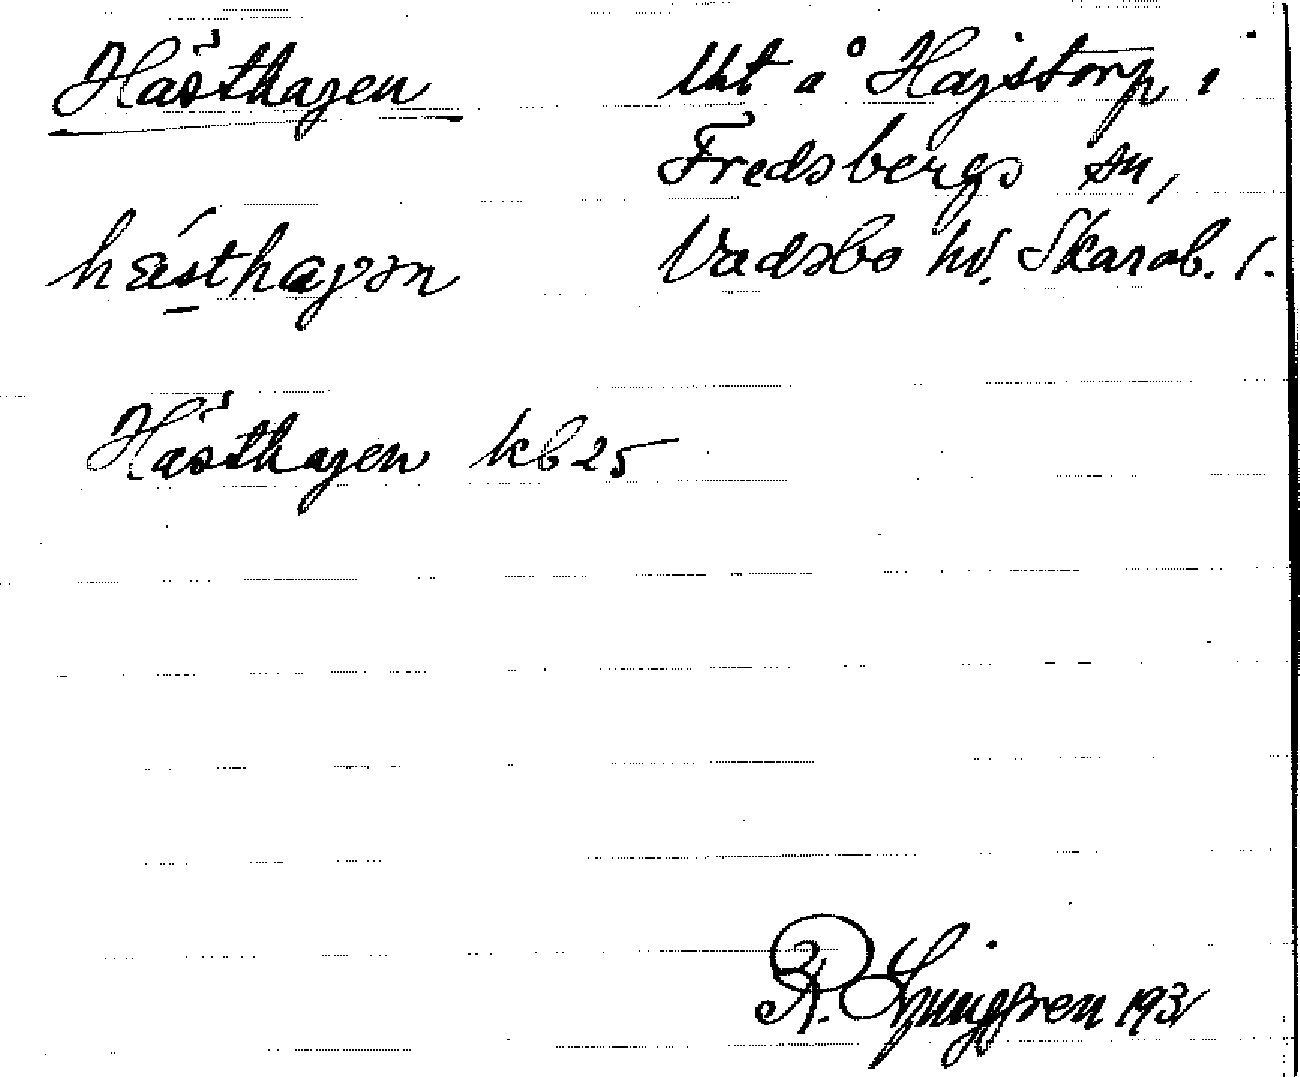 Hästhagen
Utt å Hajstorp i
Fredsbergs sn,
Vadsbo hd. Skarab. l.
hæ̀sthaɡən
Hästhagen kb 25
R. Ljunggren 1931